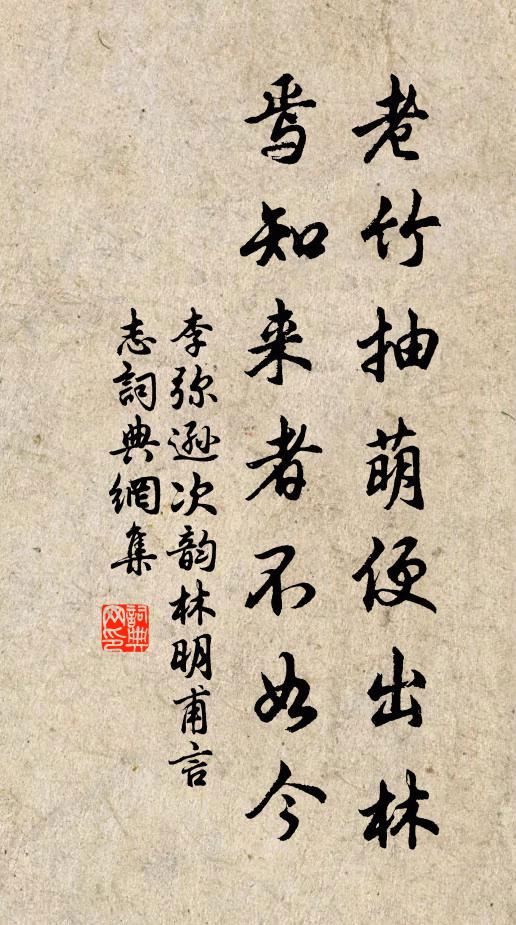 老竹抽萌便出林
焉知来者不如今
李弥逊次韵林明甫言
志詞典網集
詞典网印